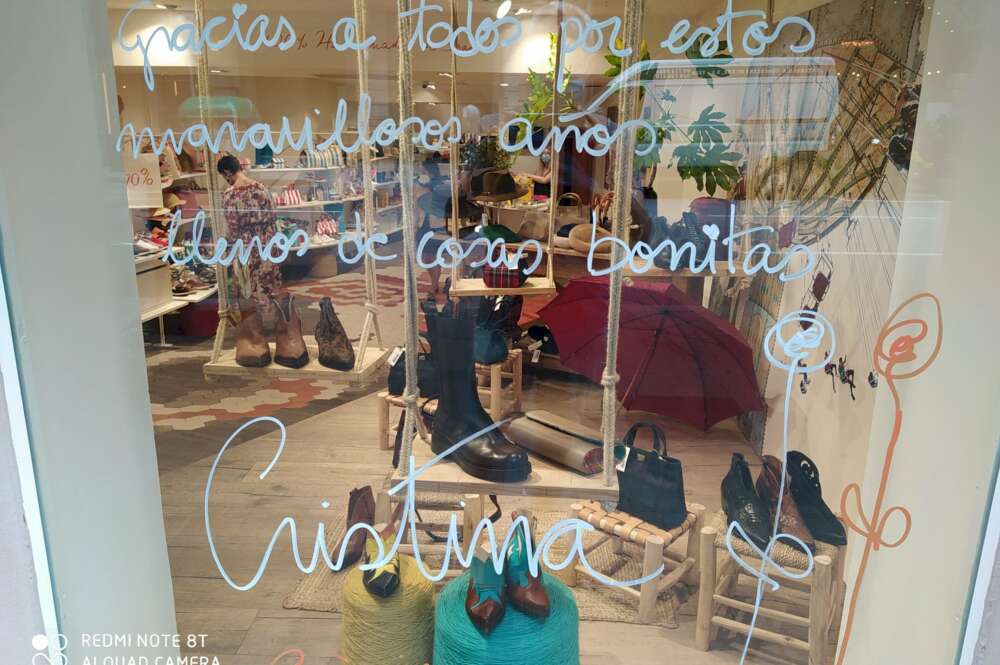 Gracias a todos por estos
maravillosos años
llenos de cosas bonitas
Cristina
REDMI NOTE 8T
AI QUAD CAMERA